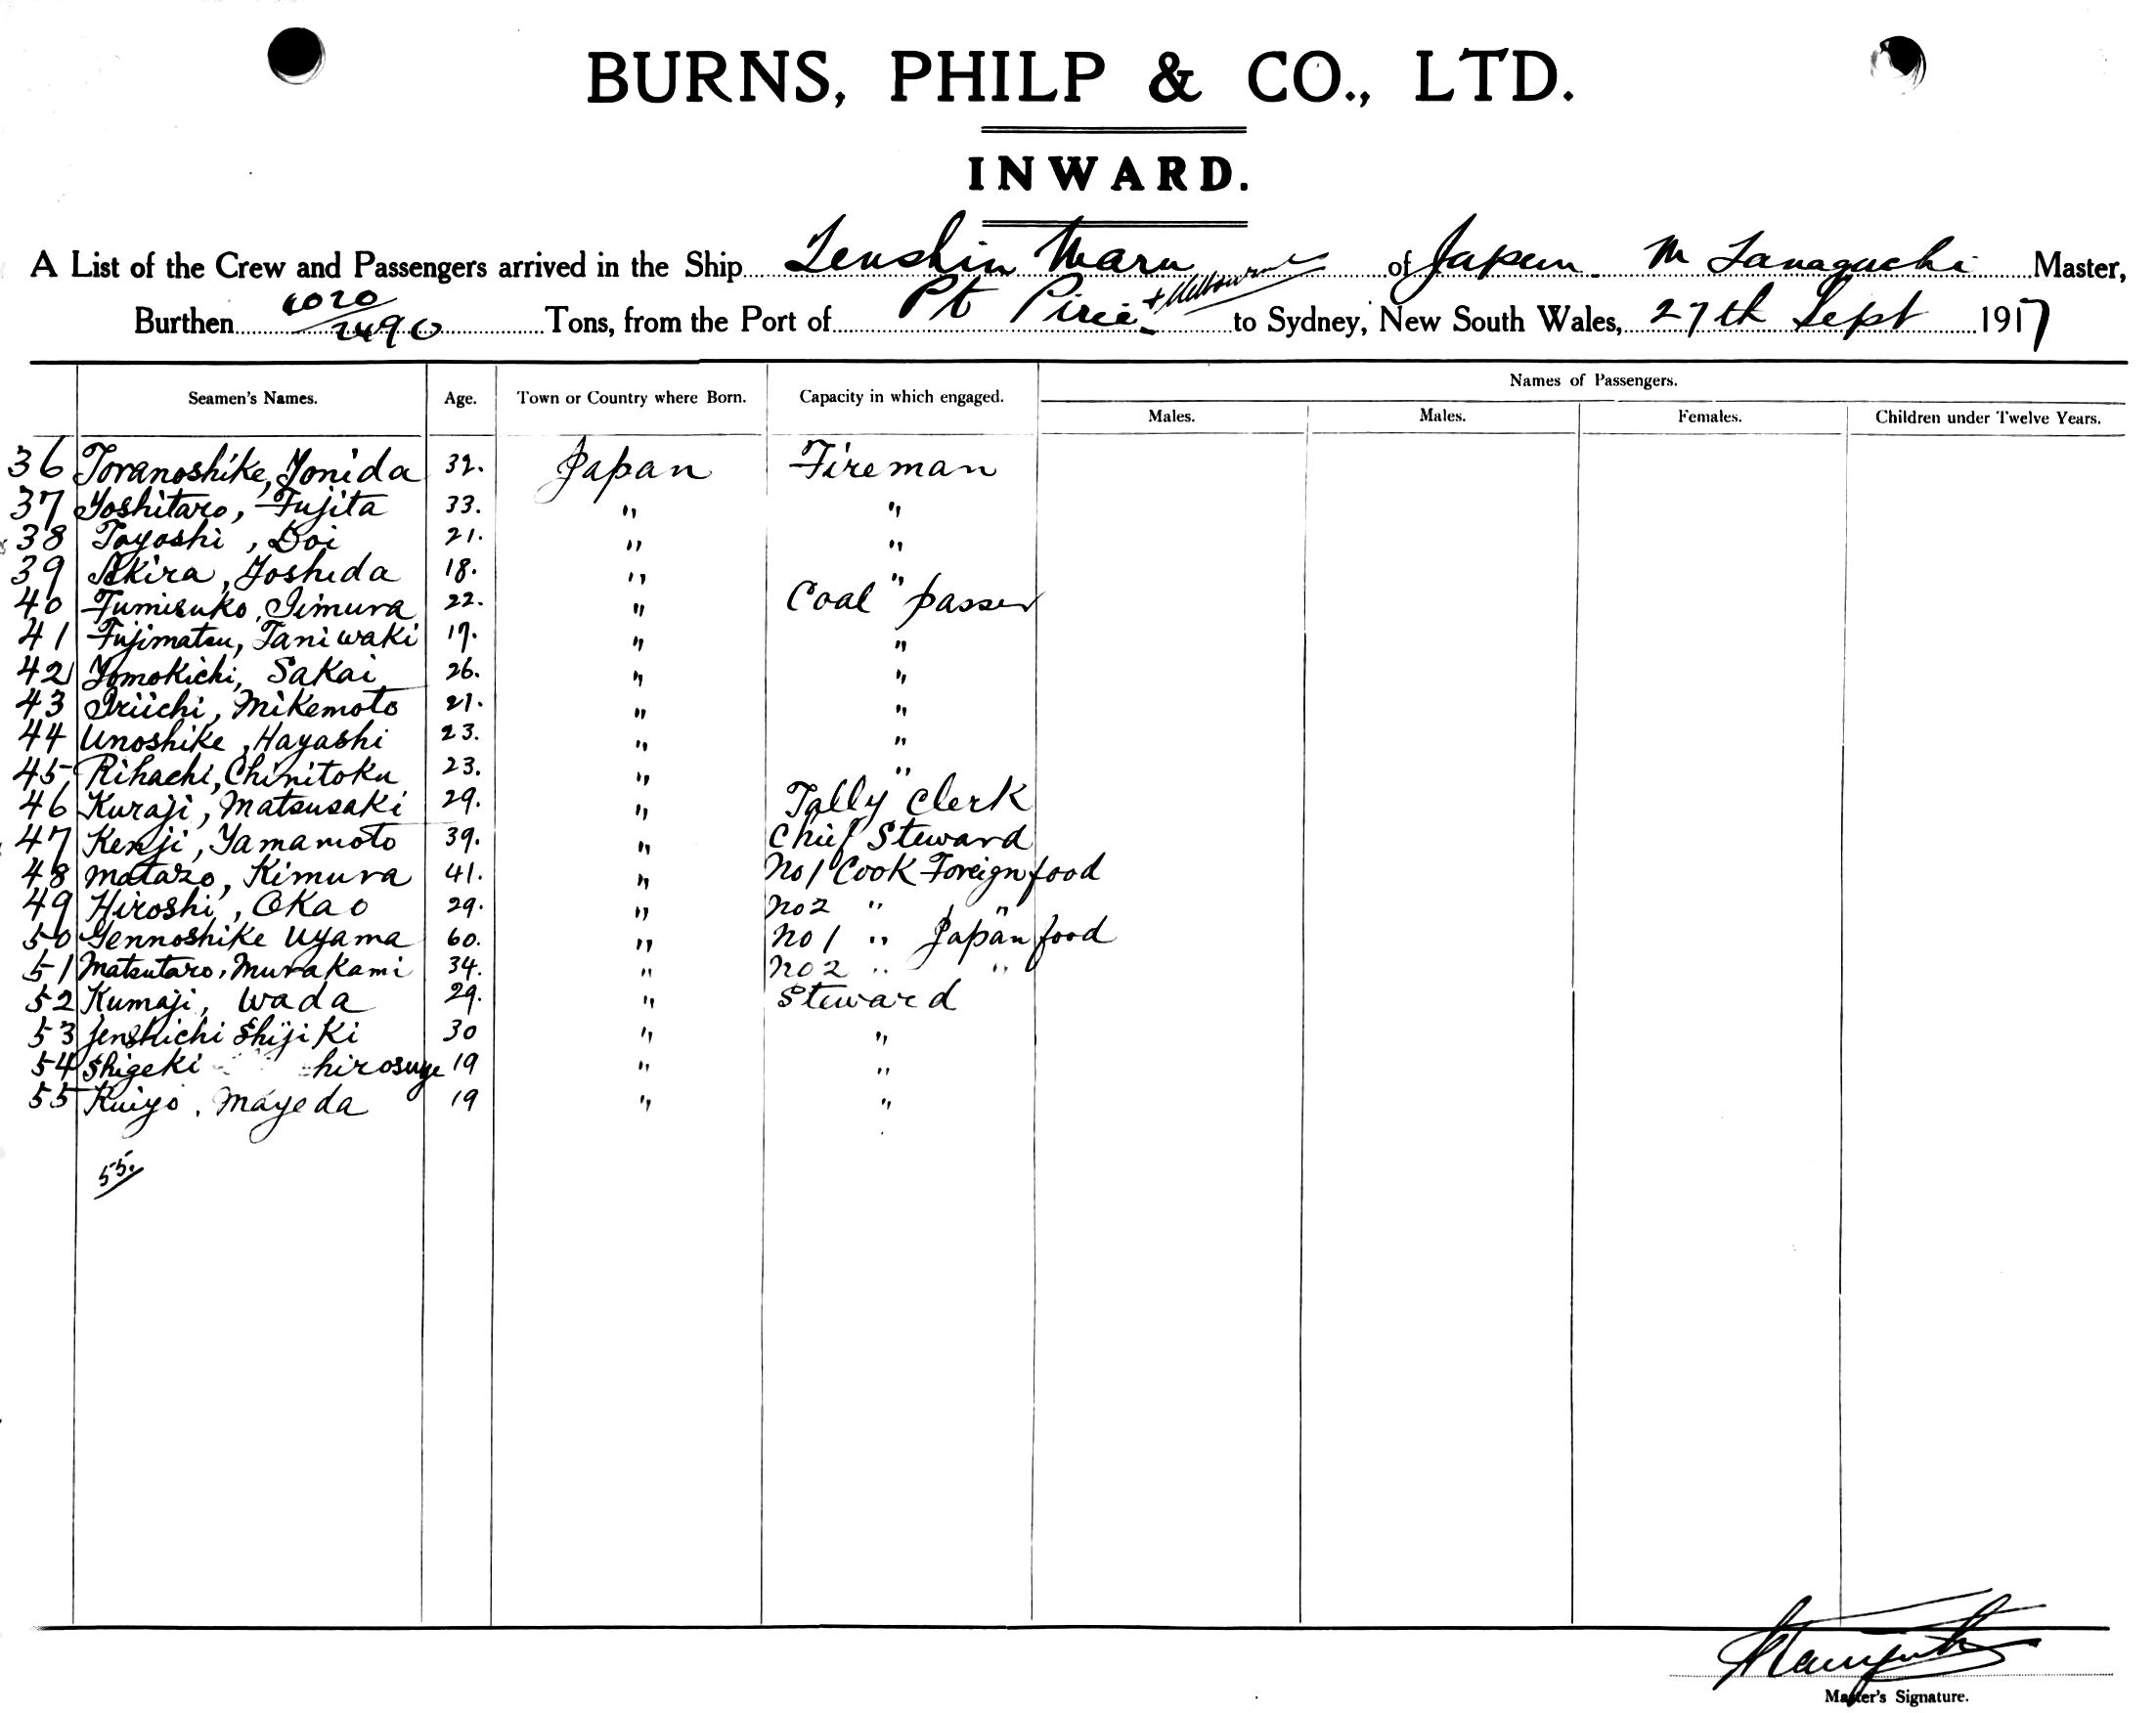 BURNS, PHILP & CO., LTD.
INWARD.
A List of the Crew and Passengers arrived in the Ship Tenshin Maru of Japan. M Tanaguchi Master,
Burthen 4020/2490 Tons, from the Port of Pt Pirie + Melbourne to Sydney, New South Wales, 27th Sept 1917
Names of Passengers.
Seamen's Names. Age. Town or Country where Born. Capacity in which engaged. Males. Males. Females. Children under Twelve Years.
36 Toranoshike, Yonida 32. Japan Fireman
37 Yoshitaro, Fujita 33. " "
38 Toyoshi, Doi 21. " "
39 Akira, Yoshida 18. " "
40 Fumisuko, Iimura 22. " Coal passer
41 Fujimatsu, Taniwaki 19. " "
42 Yomokichi, Sakai 26. " "
43 Iriichi, Mikemoto 21. " "
44 Unoshike, Hayashi 23. " "
45 Rihachi, Chinitoku 23. " "
46 Kuraji, Matsusaki 29. " Tally Clerk
47 Kenji, Yamamoto 39. " Chief Steward
48 Matazo, Kimura 41. " No 1 Cook Foreign food
49 Hiroshi, Okao 29. " No 2 " "
50 Gennoshike Uyama 60. " No 1 " Japan food
51 Matsutaro, Murakami 34. " No 2 " "
52 Kumaji, Wada 29. " Steward
53 Jenshichi Shijiki 30 " "
54 Shigeki hirosuye 19 " "
55 Kuiyo, Mayeda 19 " "
55.
Master's Signature.